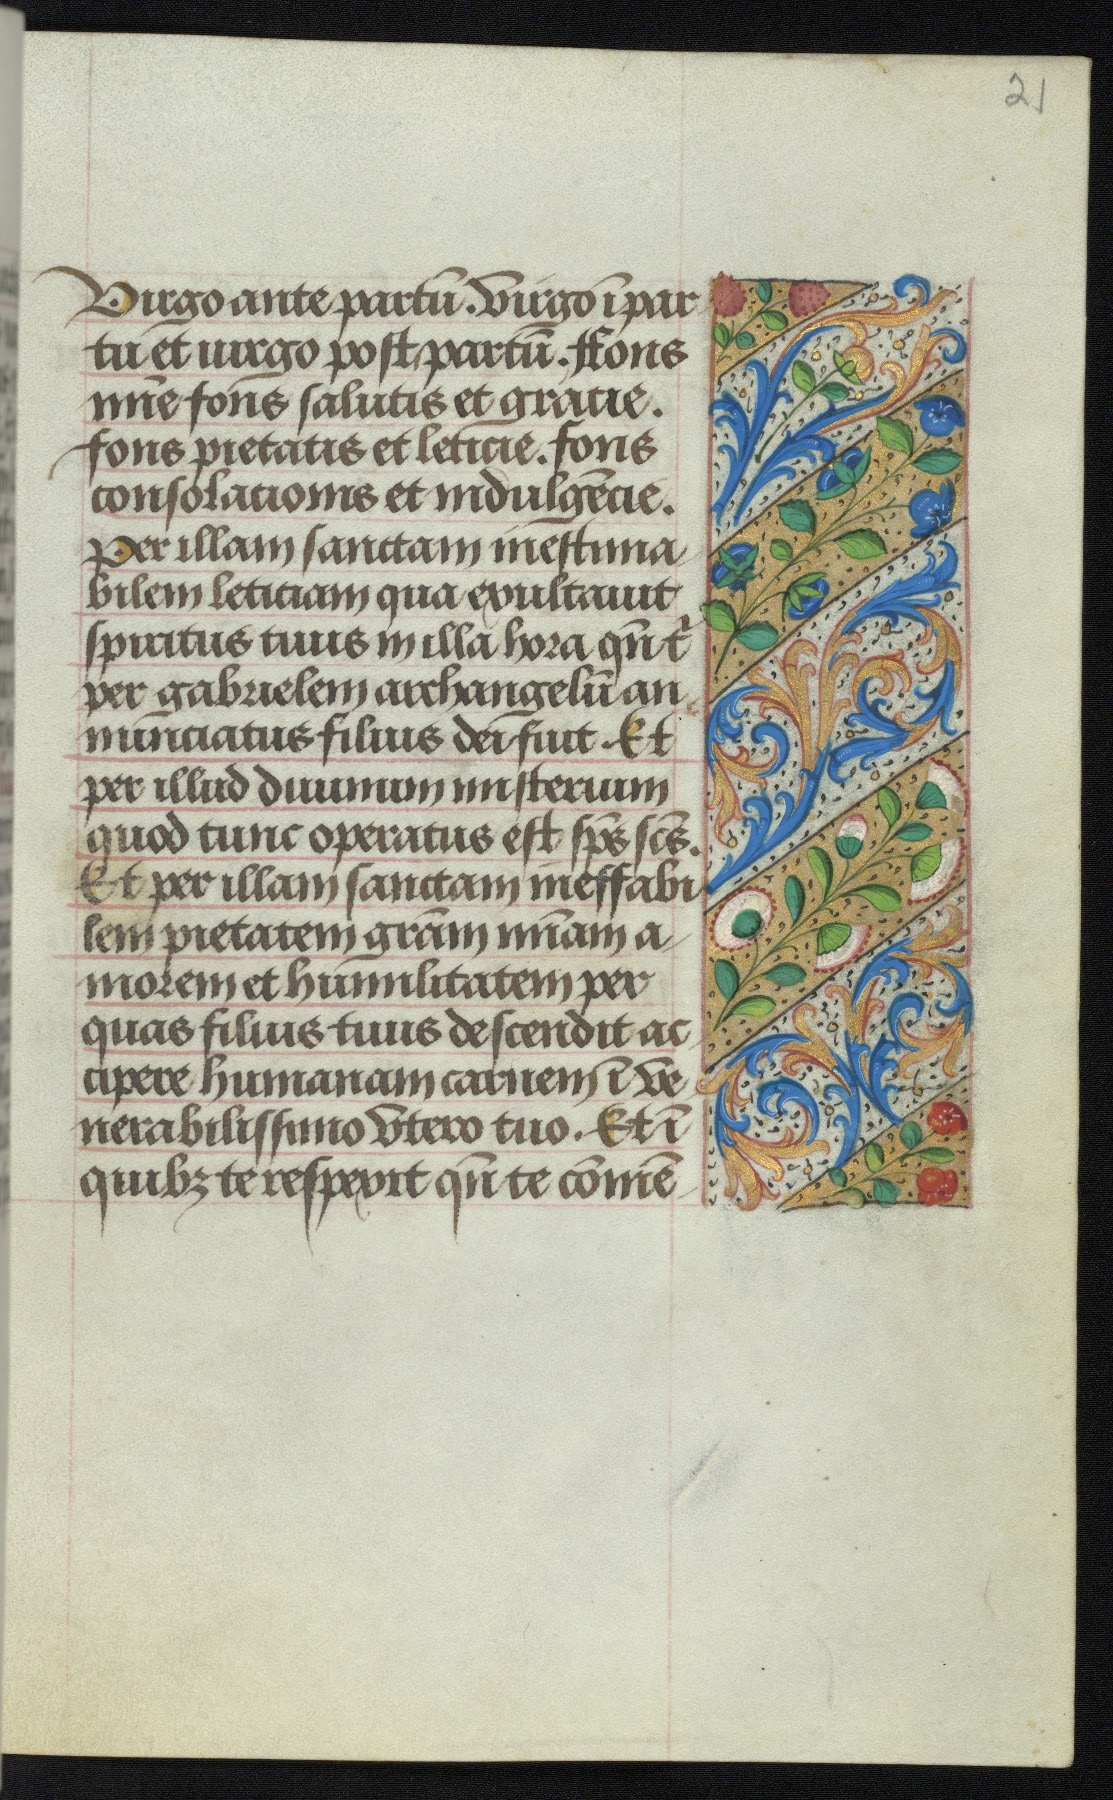 21
Virgo ante partū. Virgo ī par
tu et uirgo post partū. ffons
mīe fons salutis et gracie.
fons pietatis et leticie. fons
consolacionis et indulgēcie.
Per illam sanctam inestima
bilem leticiam qua exultauit
spiritus tuus in illa hora qn̄ t̄
per gabrielem archangelū an
nunciatus filius dei fuit. Et
per illud diuinum misterium
quod tunc operatus est sp̄s sc̄s.
Et per illam sanctam ineffabi
lem pietatem grām mīam a
morem et humilitatem per
quas filius tuus descendit ac
cipere humanam carnem ī ve
nerabilissimo vtero tuo. Et ī
quibz te respexit qn̄ te cōmē